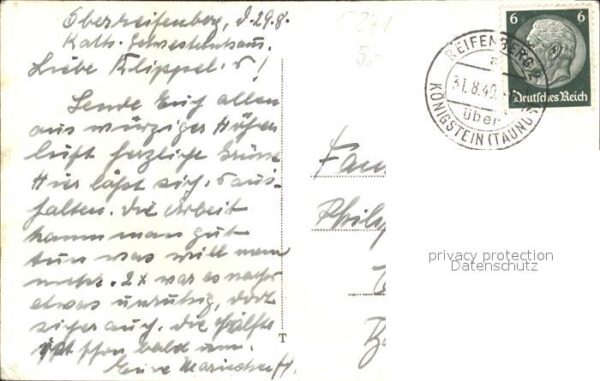 Oberreifenberg, d. 29.8.
Kath. Schwesternhaus.
Liebe Klippel.s!
Sende Euch allen
aus würziger Höhen
luft herzliche Grüsse
Hier läßt sich's aus-
halten. Die Arbeit
kann man gut
tun was will man
mehr. 2x war es nachts
etwas unruhig, dort
sicher auch. Die Hälfte
ist schon bald um.
Eure
5.-
6
6
Deutsches Reich
REIFENBERG
31.8.40
über
KÖNIGSTEIN (TAUNUS)
Fam
Philip
privacy protection
Datenschutz
T